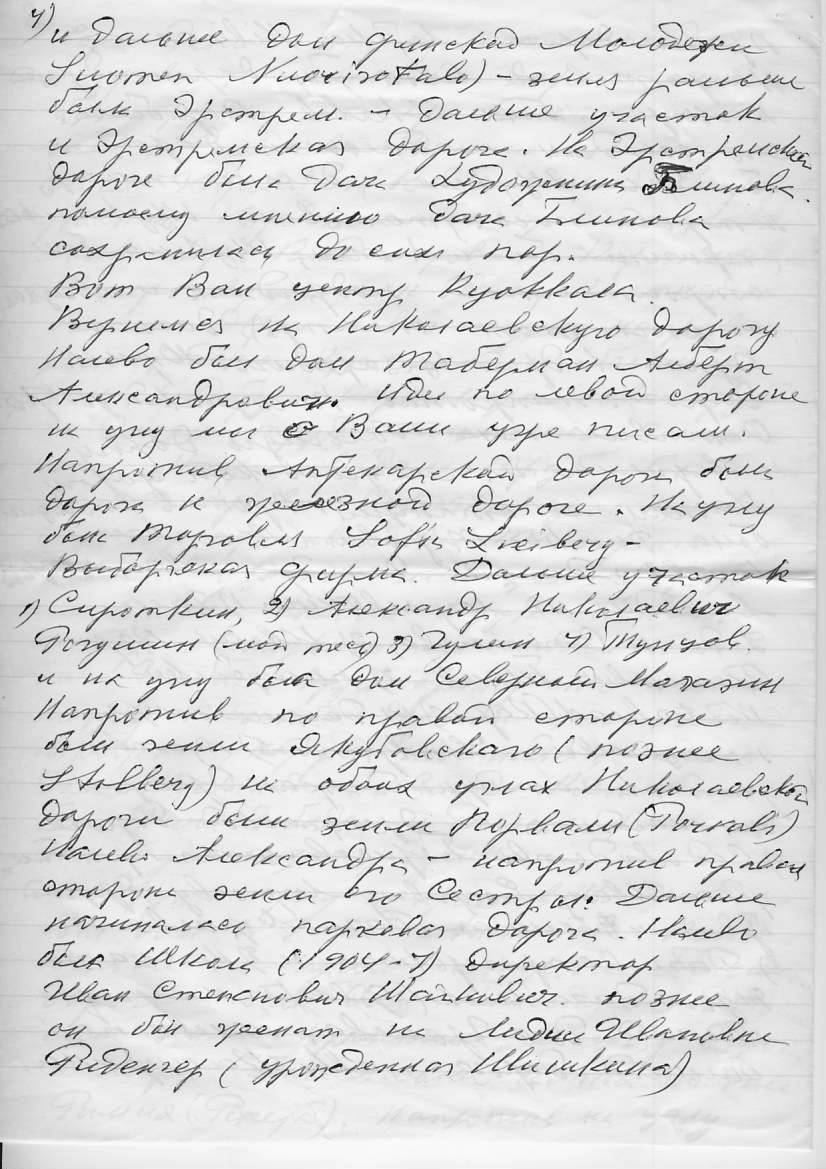 4)
и дальше дом финской Молодежи
Suomen Nuorisotalo) – земля раньше
был Эрстрем. – Дальше участок
и Эрстремская дорога. На Эрстремской
дороге была дача Художника Блинова.
по моему мнению дача Блинова
сохранилась до сих пор.
Вот Вам центр Куоккала.
Вернемся на Николаевскую дорогу
Налево был дом Таберман Альберт
Александрович. Идем по левой стороне
на углу мы с Вами уже писали.
Напротив Аптекарской дороги была
дорога к железной дороге. На углу
была Торговля Sofia Lreiberg –
Выборгская фирма. Дальше участок
1) Сироткин, 2) Александр Николаевич
Рогушин (мой тесть) 3) Гулин 4) Тунцов.
и на углу был дом Северный Магазин
Напротив по правой стороне
были земли Якубовского (позднее
Stolberg) на обоих углах Николаевской
дороги были земли Порвали (Porvali)
Налево Александра – напротив правой
стороне земли его Сестры. Дальше
начиналась парковая дорога. Налево
была Школа (1904–7) Директор
Иван Степанович Шайкевич. позднее
он был женат на Лидии Ивановне
Риденгер (урожденная Шишкина)